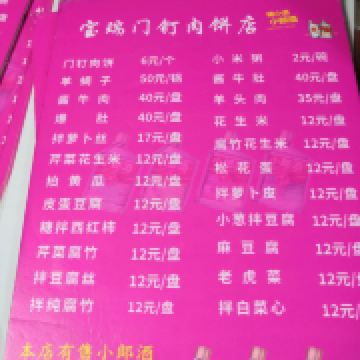 宝瑞门钉肉饼店
门钉肉饼 6元/个 小米粥 2元/碗
羊蝎子 50元/锅 酱牛肚 40元/盘
酱牛肉 40元/盘 羊头肉 35元/盘
爆肚 40元/盘 花生米 12元/盘
拌萝卜丝 17元/盘 腐竹花生米 12元/盘
芹菜花生米 12元/盘 松花蛋 12元/盘
拍黄瓜 12元/盘 拌萝卜皮 12元/盘
皮蛋豆腐 12元/盘 小葱拌豆腐 12元/盘
糖拌西红柿 12元/盘 麻豆腐 12元/盘
芹菜腐竹 12元/盘 老虎菜 12元/盘
拌豆腐丝 12元/盘 拌白菜心 12元/盘
拌纯腐竹 12元/盘
本店有售小郎酒